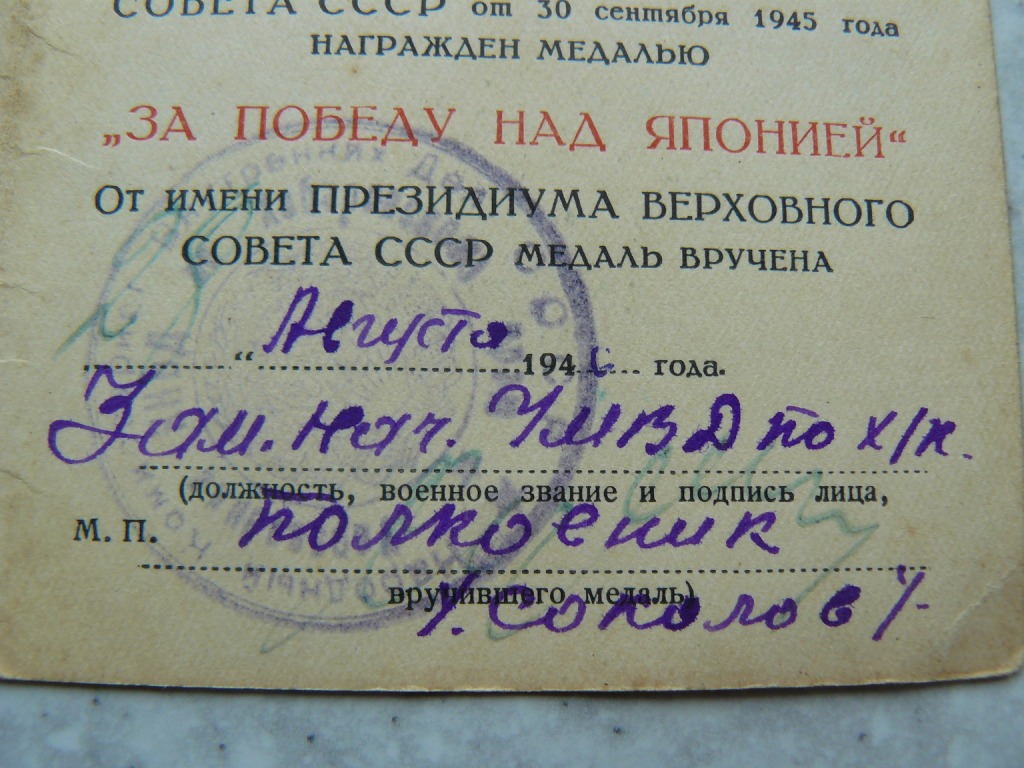 СОВЕТА СССР от 30 сентября 1945 года
НАГРАЖДЕН МЕДАЛЬЮ
„ЗА ПОБЕДУ НАД ЯПОНИЕЙ“
От имени ПРЕЗИДИУМА ВЕРХОВНОГО
СОВЕТА СССР МЕДАЛЬ ВРУЧЕНА
“ Августа 1946 года.
Зам. нач. УМВД по х/к.
(должность, военное звание и подпись лица,
М. П. полковник
вручившего медаль)
/. Соколов /.